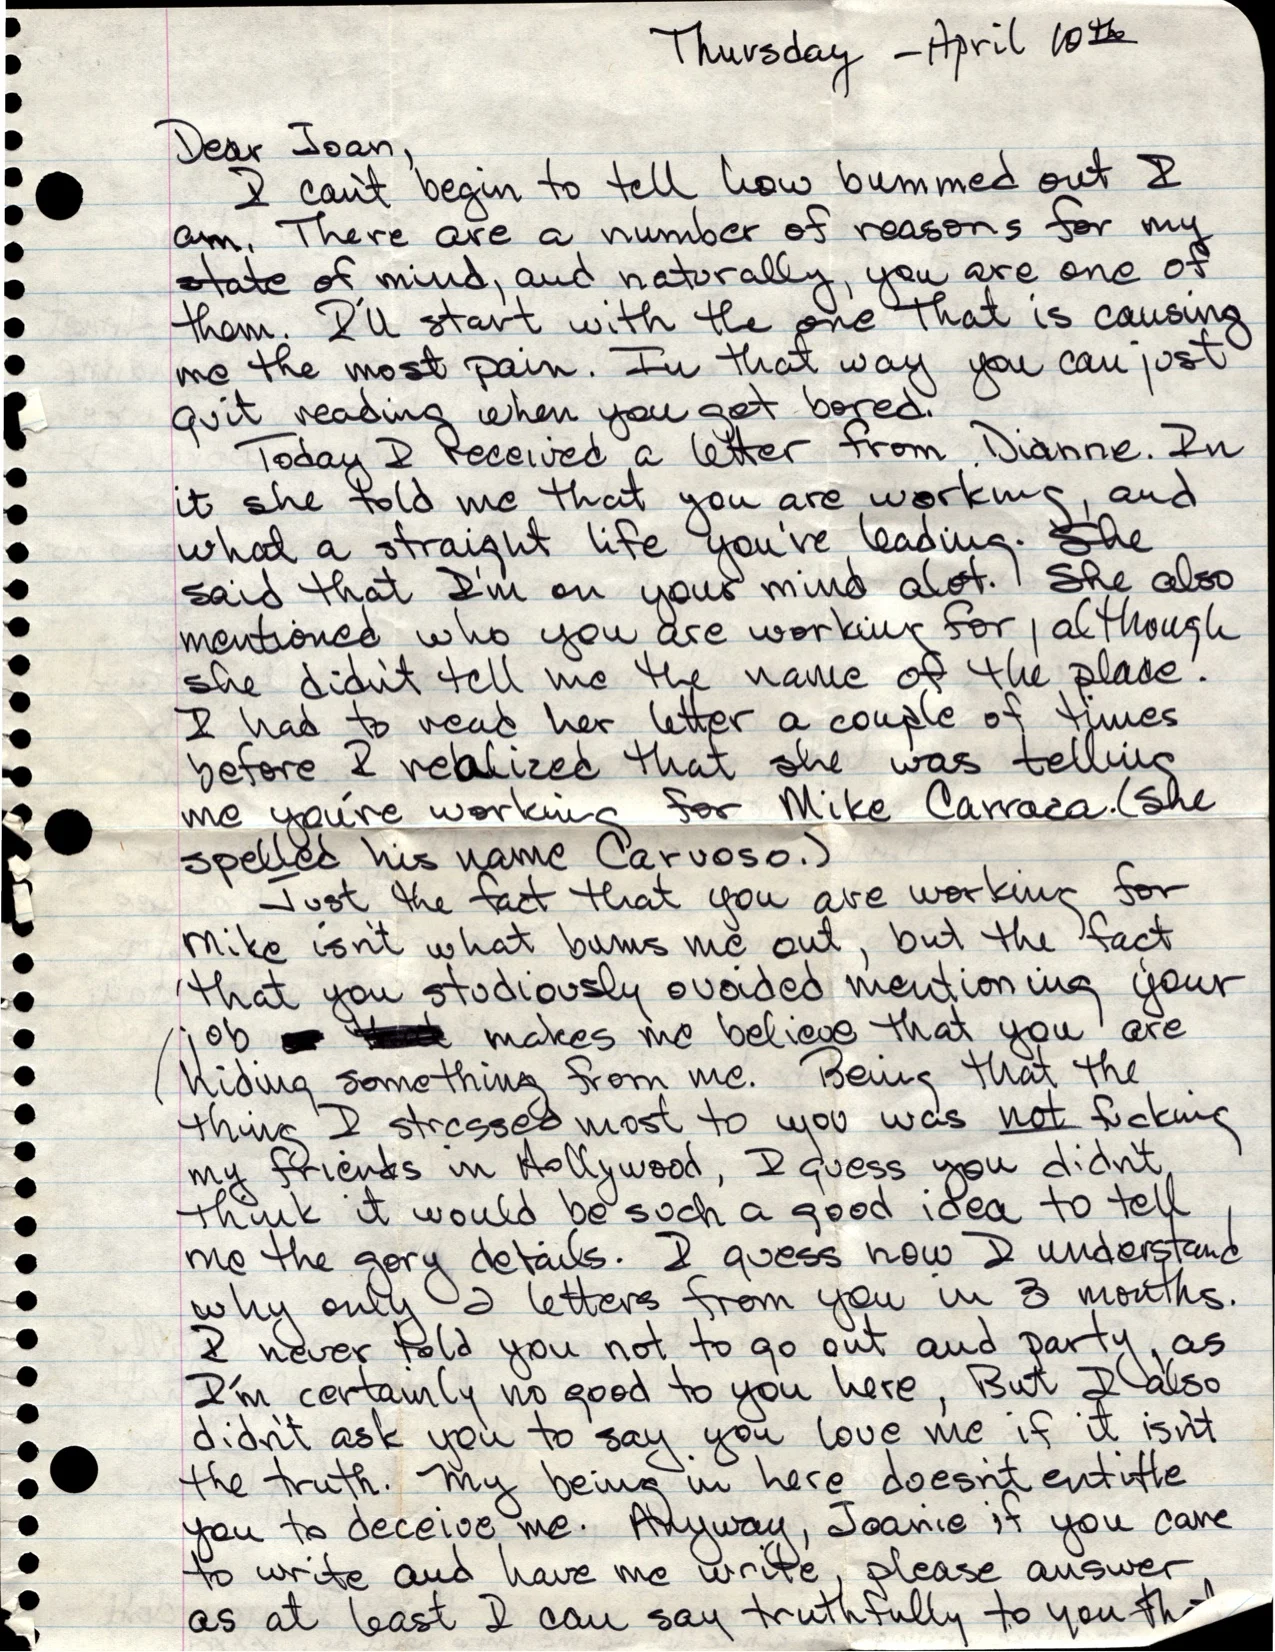 Thursday - April 10th
Dear Joan,
I can't begin to tell how bummed out I
am. There are a number of reasons for my
state of mind, and naturally, you are one of
them. I'll start with the one that is causing
me the most pain. In that way you can just
quit reading when you get bored.
Today I received a letter from Dianne. In
it she told me that you are working, and
what a straight life you've leading. She
said that I'm on your mind alot. She also
mentioned who you are working for, although
she didn't tell me the name of the place.
I had to read her letter a couple of times
before I realized that she was telling
me you're working for Mike Carraca. (She
spelled his name Caruoso.)
Just the fact that you are working for
Mike isn't what bums me out, but the fact
that you studiously avoided mentioning your
job makes me believe that you are
hiding something from me. Being that the
thing I stressed most to you was not fucking
my friends in Hollywood, I guess you didn't
think it would be such a good idea to tell
me the gory details. I guess now I understand
why only 2 letters from you in 3 months.
I never told you not to go out and party, as
I'm certainly no good to you here, But I also
didn't ask you to say you love me if it isn't
the truth. My being in here doesn't entitle
you to deceive me. Anyway, Joanie if you care
to write and have me write, please answer
as at least I can say truthfully to you that